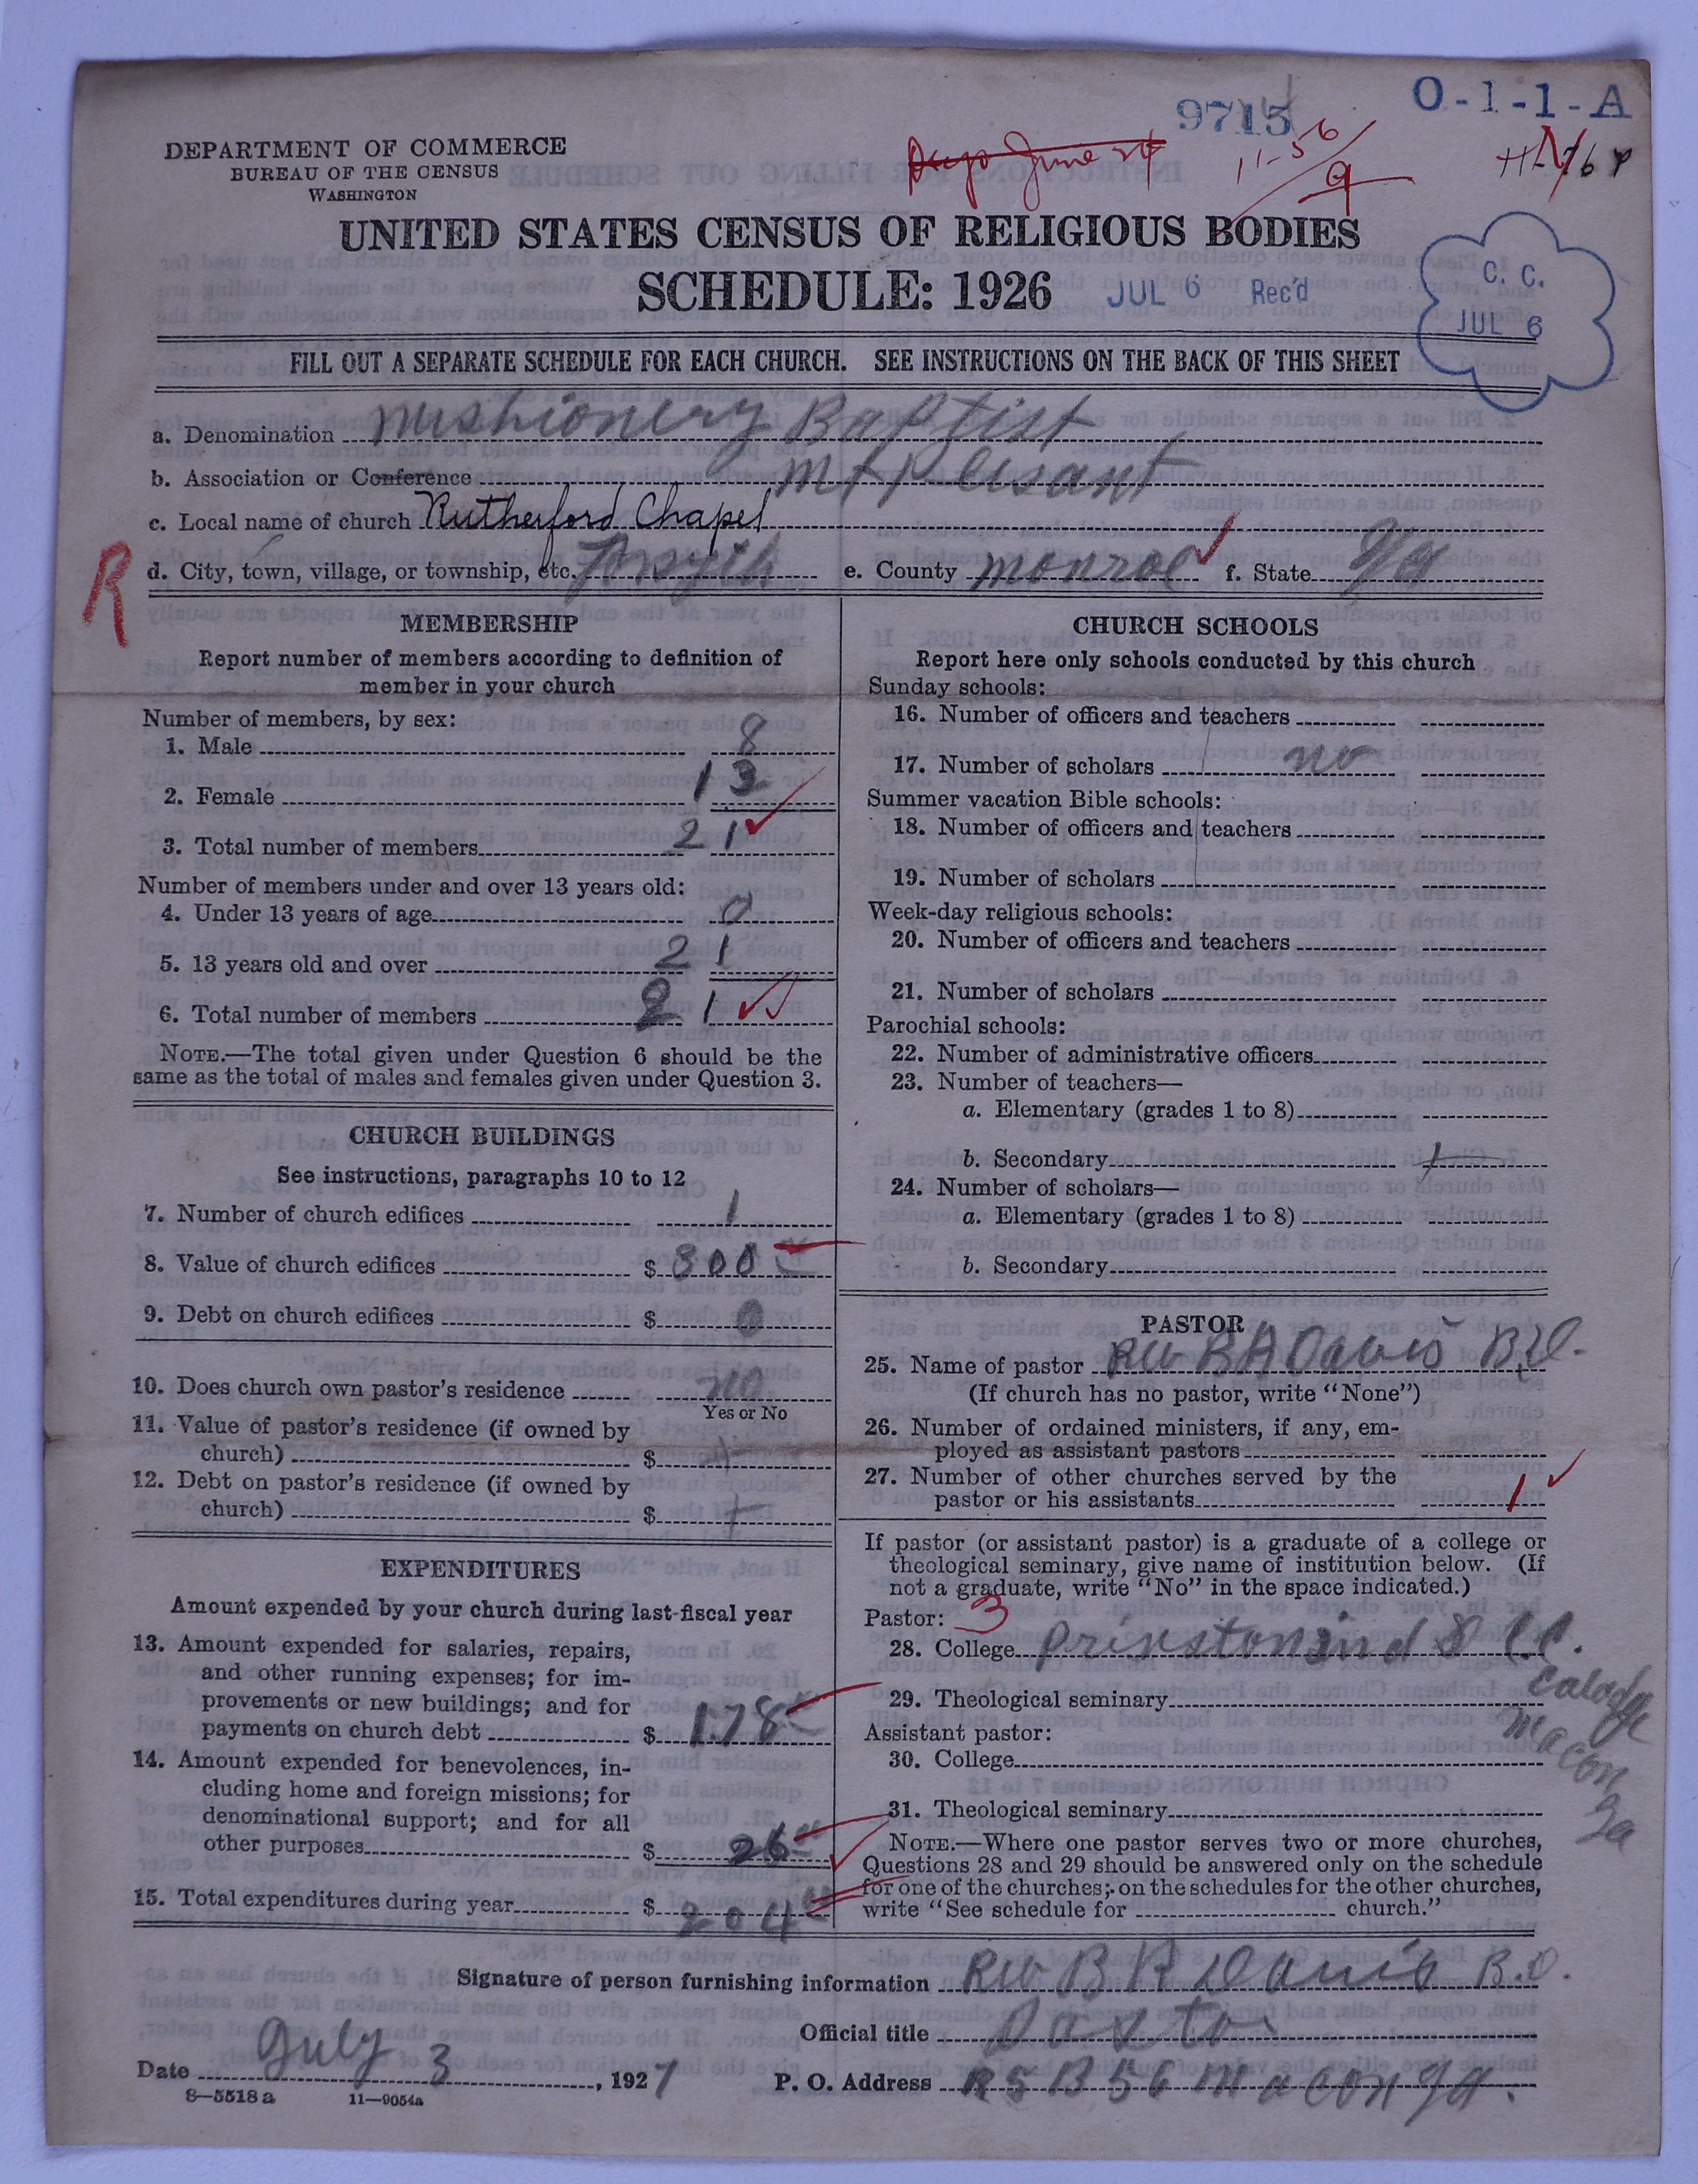 O-1-1-A
9715
11-56
9
DEPARTMENT OF COMMERCE
BUREAU OF THE CENSUS
WASHINGTON
UNITED STATES CENSUS OF RELIGIOUS BODIES
SCHEDULE: 1926
JUL 6 Rec'd
C. C.
JUL 6
FILL OUT A SEPARATE SCHEDULE FOR EACH CHURCH. SEE INSTRUCTIONS ON THE BACK OF THIS SHEET
a. Denomination Mishionery Baptist
b. Association or Conference Mt Plesant
c. Local name of church Rutherford Chapel
R
d. City, town, village, or township, etc. Forsyth e. County Monroe f. State Ga
MEMBERSHIP
Report number of members according to definition of
member in your church
Number of members, by sex:
1. Male 8
2. Female 13
3. Total number of members 21
Number of members under and over 13 years old:
4. Under 13 years of age 0
5. 13 years old and over 21
6. Total number of members 21
NOTE.—The total given under Question 6 should be the
same as the total of males and females given under Question 3.
CHURCH BUILDINGS
See instructions, paragraphs 10 to 12
7. Number of church edifices 1
8. Value of church edifices $ 300
9. Debt on church edifices $ 0
10. Does church own pastor's residence no
Yes or No
11. Value of pastor's residence (if owned by
church) $
12. Debt on pastor's residence (if owned by
church) $
EXPENDITURES
Amount expended by your church during last fiscal year
13. Amount expended for salaries, repairs,
and other running expenses; for im-
provements or new buildings; and for
payments on church debt $ 178
14. Amount expended for benevolences, in-
cluding home and foreign missions; for
denominational support; and for all
other purposes $ 26
15. Total expenditures during year $ 204
CHURCH SCHOOLS
Report here only schools conducted by this church
Sunday schools:
16. Number of officers and teachers
17. Number of scholars no
Summer vacation Bible schools:
18. Number of officers and teachers
19. Number of scholars
Week-day religious schools:
20. Number of officers and teachers
21. Number of scholars
Parochial schools:
22. Number of administrative officers
23. Number of teachers—
a. Elementary (grades 1 to 8)
b. Secondary
24. Number of scholars—
a. Elementary (grades 1 to 8)
b. Secondary
PASTOR
25. Name of pastor Rev B A Davis B.D.
(If church has no pastor, write "None")
26. Number of ordained ministers, if any, em-
ployed as assistant pastors
27. Number of other churches served by the
pastor or his assistants 1
If pastor (or assistant pastor) is a graduate of a college or
theological seminary, give name of institution below. (If
not a graduate, write "No" in the space indicated.)
Pastor: 3
28. College C.C.
Macon
Ga
29. Theological seminary
Assistant pastor:
30. College
31. Theological seminary
NOTE.—Where one pastor serves two or more churches,
Questions 28 and 29 should be answered only on the schedule
for one of the churches; on the schedules for the other churches,
write "See schedule for church."
Signature of person furnishing information Rev B R Davis B.D.
Official title Paster
Date July 3, 1927 P. O. Address R 5 B 56 Macon Ga.
8—5518 a 11—9054a